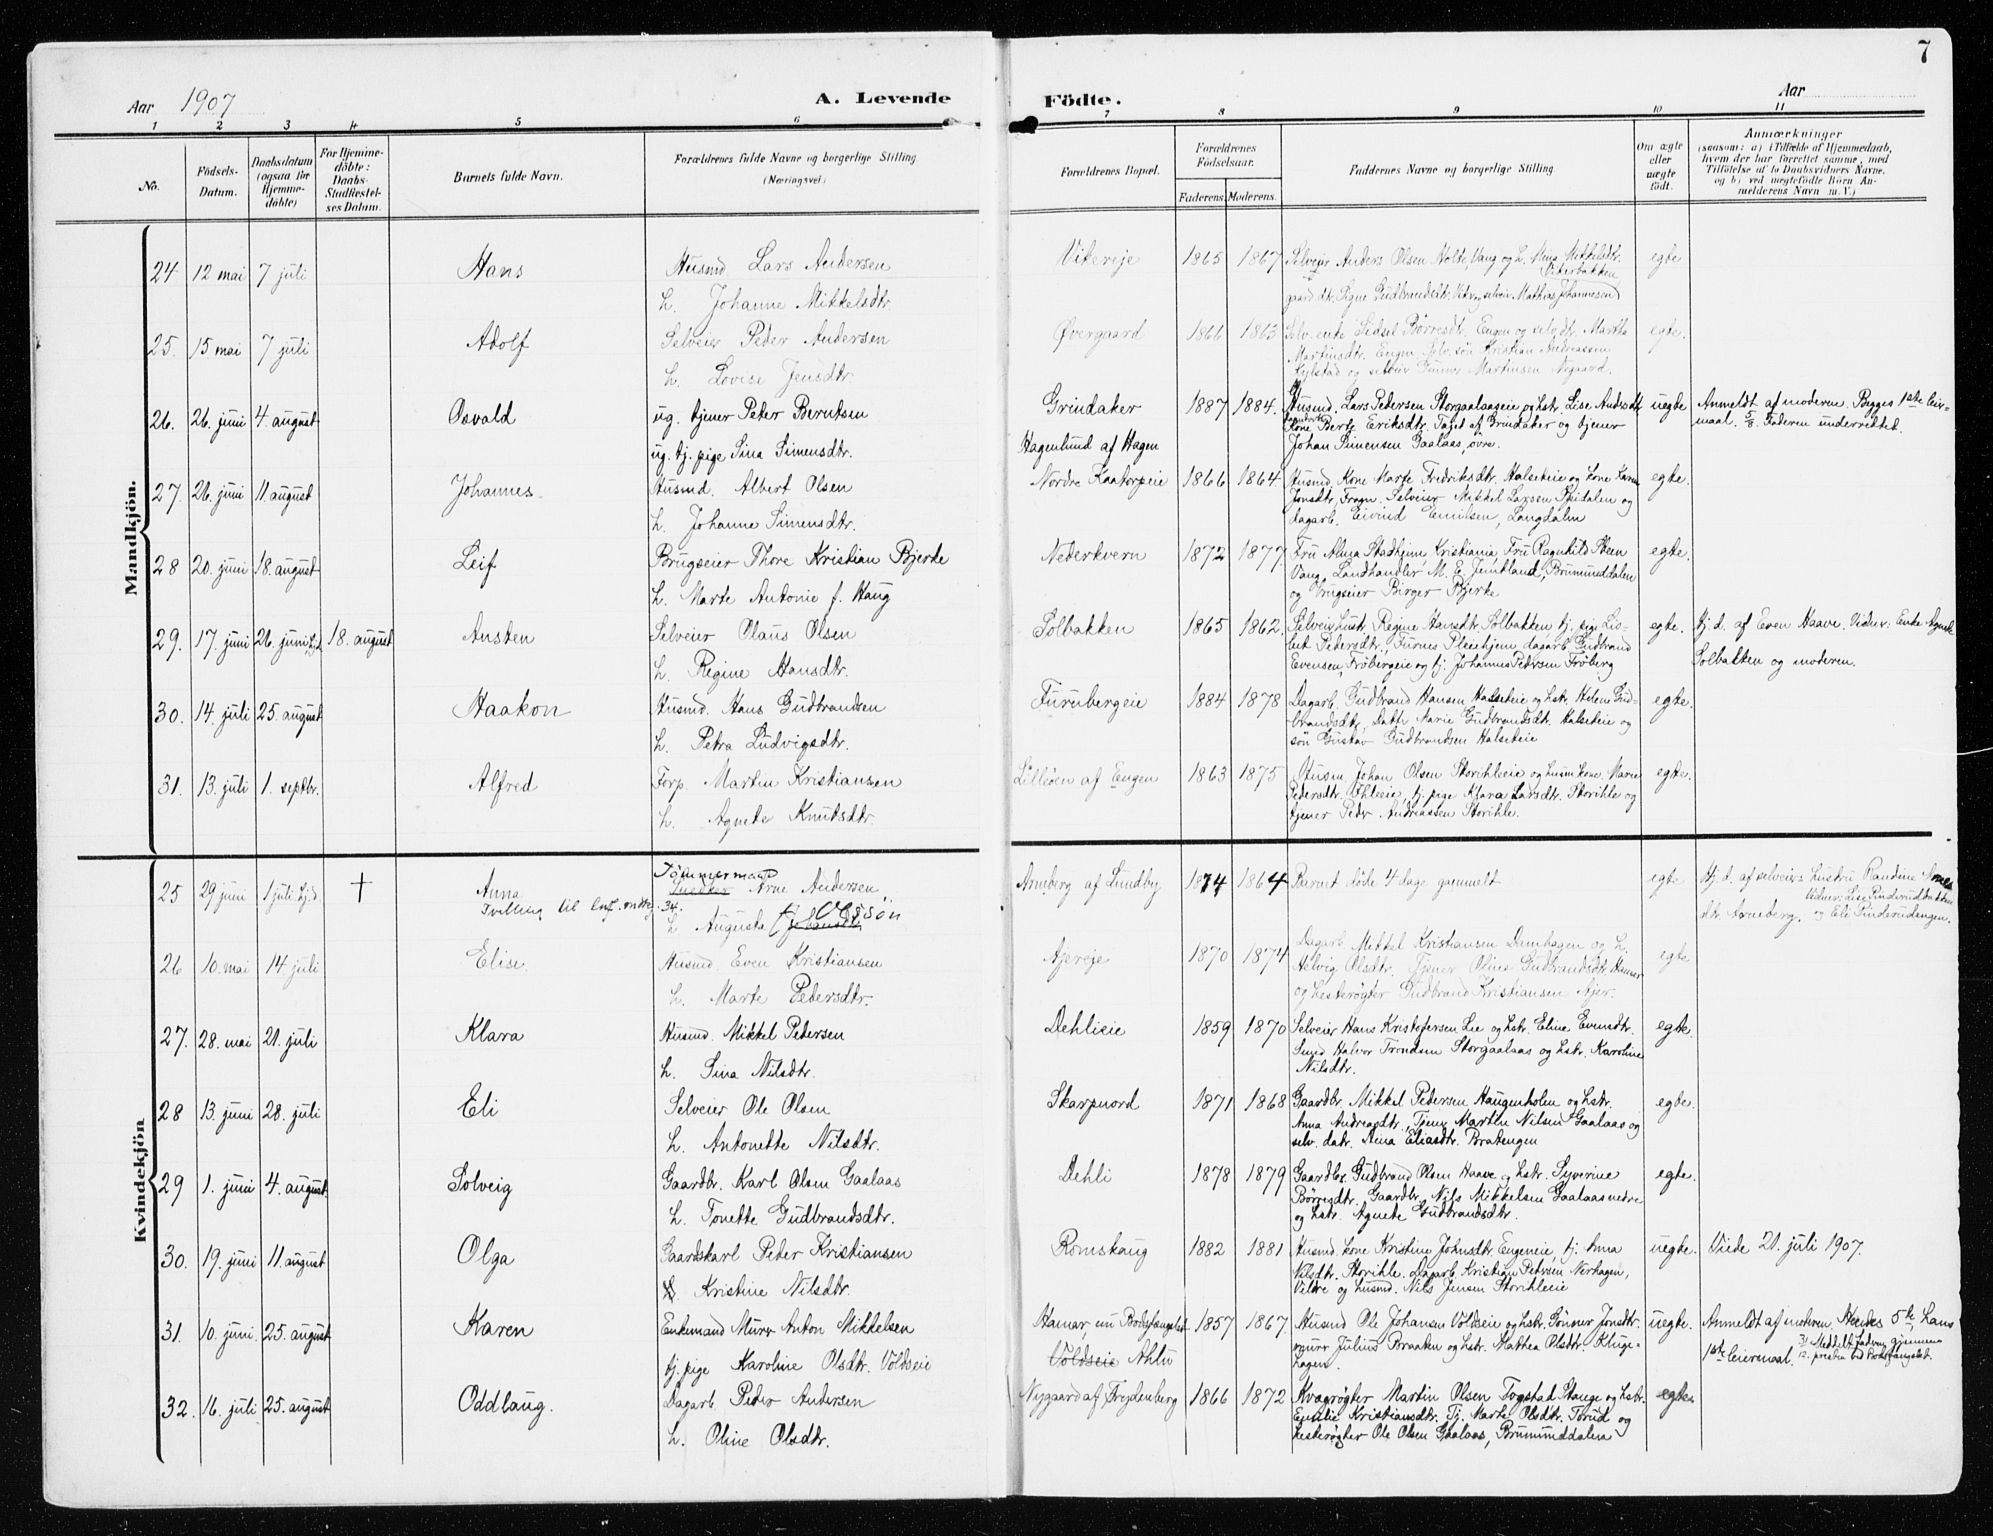 7
Aar 1907
A. Levende
Födte.
Aar
1 2 3 4 5 6 7 8 9 10 11
No.
Födsels-Datum.
Daabsdatum (ogsaa for Hjemme-döbte)
For Hjemme-döbte: Daabs-Stadfæstel-ses Datum.
Barnets fulde Navn.
Forældrenes fulde Navne og borgerlige Stilling
(Næringsvei)
Forældrenes Bopæl.
Forældrenes Födselsaar.
Faderens. Moderens.
Faddernes Navne og borgerlige Stilling.
Om ægte eller uægte födt.
Anmærkninger
(saasom: a) i Tilfælde af Hjemmedaab,
hvem der har forrettet samme, med
Tilföielse af to Daabsvidners Navne.
og b) ved uægtefödte Börn An-
melderens Navn m. V.)
Mandkjön.
24 12 mai 7 juli Hans Husmd. Lars Andersen Vikereje 1865 1867 Selveier Anders Olsen Holte, Vang og L. Mina Mikkelsdtr. egte
Vikerbakken
L. Johanne Mikkelsdtr gaardtr. Signe Gudbrandsdtr. Vik og selveier Mathias Johannesen
25. 15 mai 7 juli Adolf Selveier Peder Andersen Övergaard 1866 1863 Selv. enke Sidsel Börresdtr. Engen og selv. dtr. Martha egte.
Martinsdtr. Engen, selv. sön Kristian Andreassen
L. Lovise Jensdtr og selveier Gunner Martinsen
26. 26. juni 4. august Osvald ug. tjener Peter Berntsen Grindaker 1887 1884. Husmd. Lars Pedersen Storgaalaaseie og hstr. Lise Andersdtr uegte Anmeldt af moderen. Begges 1ste leier-
Kone Berte Eriksdtr. Taget af Grindaker og tjener maal. 5/8. Faderen underrettet.
ug. tj. pige Sina Simensdtr. Hagenlund af Hagen Johan Simensen Gaalaas, övre.
27. 26. juni 11. august Johannes Husmd. Albert Olsen Nordre Kaatorpeie 1866 1864. Husmd. Kone Marte Fredriksdtr. Halseteie og kone Karen egte.
Jonsdtr, Fragn. Selveier Mikkel Larsen Spitalen og
L. Johanne Simensdtr. dagarb. Eivind Emilsen, Langdalen
28 20. juni 18. august Leif Brugseier Thore Kristian Bjerke Nederkvern 1872 1877. Fru Alma Stadheim, Kristiania, Fru Ragnhild Steen egte.
Vang, Landhandler M. E. Jemtland, Brumunddalen
L. Marte Antonie f. Haug og brugseier Birger Bjerke
29. 17. juni 26. juni 18. august Austen Selveier Olaus Olsen Solbakken 1865 1862. Selveierhustr. Regine Hansdtr. Solbakken, tj. pige Lis- egte. Hj. d. af Even Haave. Vidner: Enke Agnete
bet Pedersdtr., Furnes Pleiehjem, dagarb. Gudbrand
L. Regine Hansdtr. Evensen, Fröbergeie og tj. Johannes Pedersen Fröberg Solbakken og moderen.
30. 14. juli 25. august Haakon Husmd. Hans Gudbrandsen Furubergeie 1884 1878 Dagarb. Gudbrand Hansen Halseteie og hstr. Helene Gud- egte.
brandsdtr, Dath Marie Gudbrandsdtr. Halseteie og
L. Petra Ludvigsdtr. sön Gustav Gudbrandsen Halseteie
31. 13. juli 1. septbr. Alfred Forp. Martin Kristiansen Lilleöen af Engen 1863 1875 Husm. Johan Olsen Storihleeie og husm. kone Marie egte.
Pedersdtr. Ihleeie, tj. pige Klara Larsdtr. Storihle og
L. Agnete Knutsdtr. tjener Peder Andreassen Storihle.
Kvindekjön
25 29 juni 1 juli hj.d. † Anna Tömmermand Snedker Arne Andersen Arneberg af Lundby 1874 1864 Barnet döde 4 dage gammelt egte Hj. d. af selveiers hustru Randine
Tvilling til 34. Vidner: Lise Pinderudbakken
L. Augusta Olssön dtr. Arneberg. og Eli Pinderudengen.
26 10. mai 14. juli Elise. Husmd. Even Kristiansen Ajereje 1870 1874 Dagarb. Mikkel Kristiansen Damhagen og L. egte
Helvig Olsdtr. Tjener Oline Gudbrandsdtr. Hamar
L. Marte Pedersdtr. og hesterögter Gudbrand Kristiansen Ajer.
27. 28. mai 21. juli Klara Husmd. Mikkel Pedersen Dehlieie 1859 1870 Selveier Hans Kristofersen Lie og hstr. Eline Evensdtr. egte.
Smed Halvor Trondsen Storgaalaas og hstr. Karoline
L. Sina Nilsdtr. Nilsdtr.
28 13. juni 28. juli Eli Selveier Ole Olsen Skarpnord 1871 1868 Gaardbr. Mikkel Pedersen Haugenholen og hstr. egte.
Anna Andreasdtr., Tjener Martin Nilsen Gaalaas og
L. Antonette Nilsdtr. selv. datr. Alna Eliasdtr. Bratengen
29 1. juni 4. august Solveig Gaardbr. Karl Olsen Gaalaas Dehli 1878 1879 Gaardbr. Gudbrand Olsen Haave og hstr. Syverine egte.
Börresdtr. Gaardbr. Nils Mikkelsen Gaalaas nedre
L. Tonette Gudbrandsdtr. og hstr. Agnete Gudbrandsdtr.
30. 19. juni 11. august Olga Gaardskarl Peder Kristiansen Romskaug 1882 1881 Husmd. kone Kristine Johnsdtr. Engeneie, tj. Anna uegte. Viede 21. juli 1907.
Nilsdtr. Storihle. Dagarb. Kristian Petersen Nerhagen,
Kristine Nilsdtr. Veldre og husmd. Nils Jensen Storihleeie
31. 10. juni 25. august Karen Enkemand Murer Anton Mikkelsen Hamar, nu Bodsfængslet 1857 1867. Husmd Ole Johansen Voldseie og hstr. Gönner Jonsdtr. uegte. Anmeldt af moderen. Hendes 5te, hans
murer Julius Braaken og hstr. Mathea Olsdtr. Kluge- 3/12. Meddelt faderen gjennem
tj. pige Karoline Olsdtr. Voldseie Voldseie Ahlu hagen. 1ste leiermaal. presten ved Bodsfængslet.
32. 16. juli 25. august Oddlaug. Dagarb. Peder Andersen Nygaard af Frydenberg 1866 1872 Kvægrögter Martin Olsen Togstad Stange og hstr. egte
Emilie Kristiansdtr. Tj. Marte Olsdtr. Torud og
L. Oline Olsdtr. hesterögter Ole Olsen Gaalaas, Brumunddalen